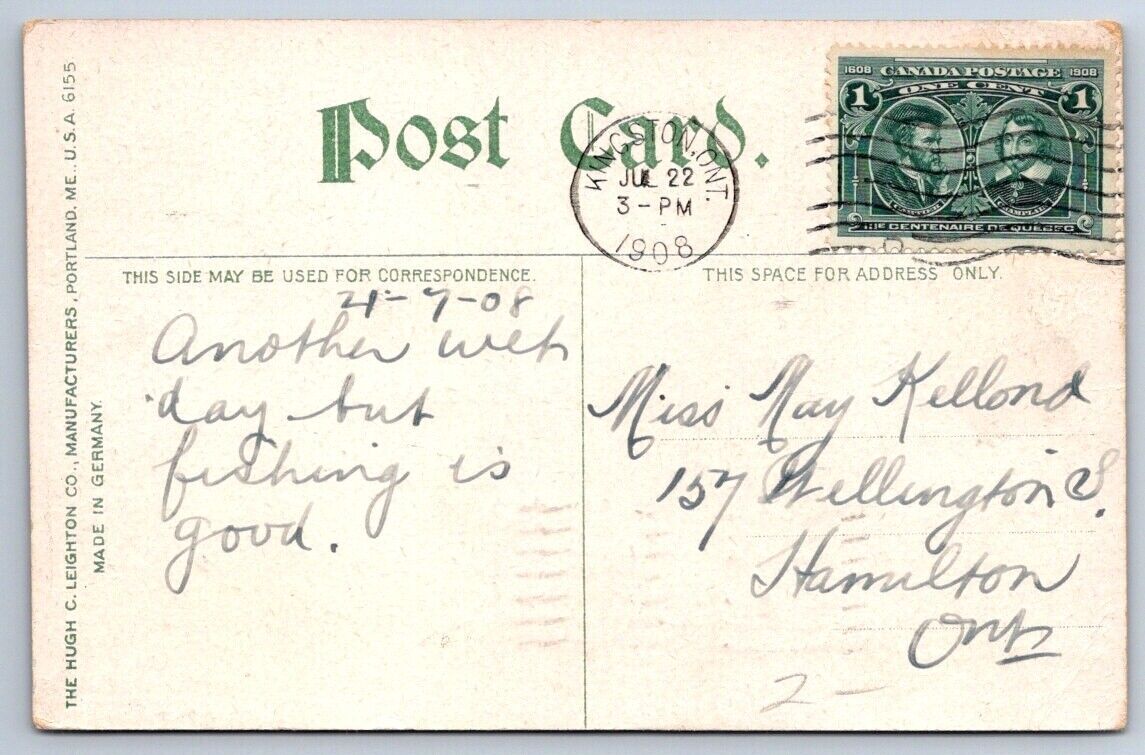 THE HUGH C. LEIGHTON CO., MANUFACTURERS, PORTLAND, ME., U.S.A. 6155
MADE IN GERMANY.
Post Card.
KINGSTON, ONT.
JUL 22
3-PM
1908
1608 CANADA POSTAGE 1908
1 ONE CENT 1
CARTIER CHAMPLAIN
IIIE CENTENAIRE DE QUÉBEC
THIS SIDE MAY BE USED FOR CORRESPONDENCE.
21-7-08
Another wet
day but
fishing is
good.
THIS SPACE FOR ADDRESS ONLY.
Miss May Kellond
157 Wellington S.
Hamilton
Ont
2-